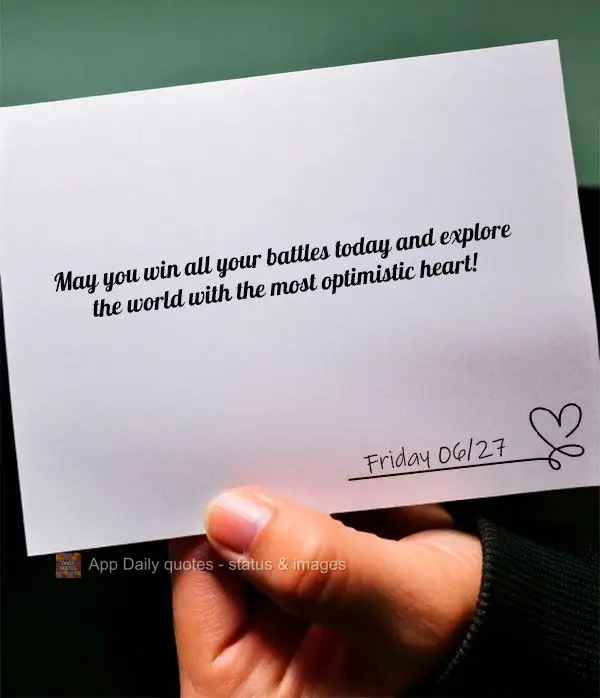 May you win all your battles today and explore
the world with the most optimistic heart!
Friday 06/27
DAILY QUOTES
App Daily quotes - status & images